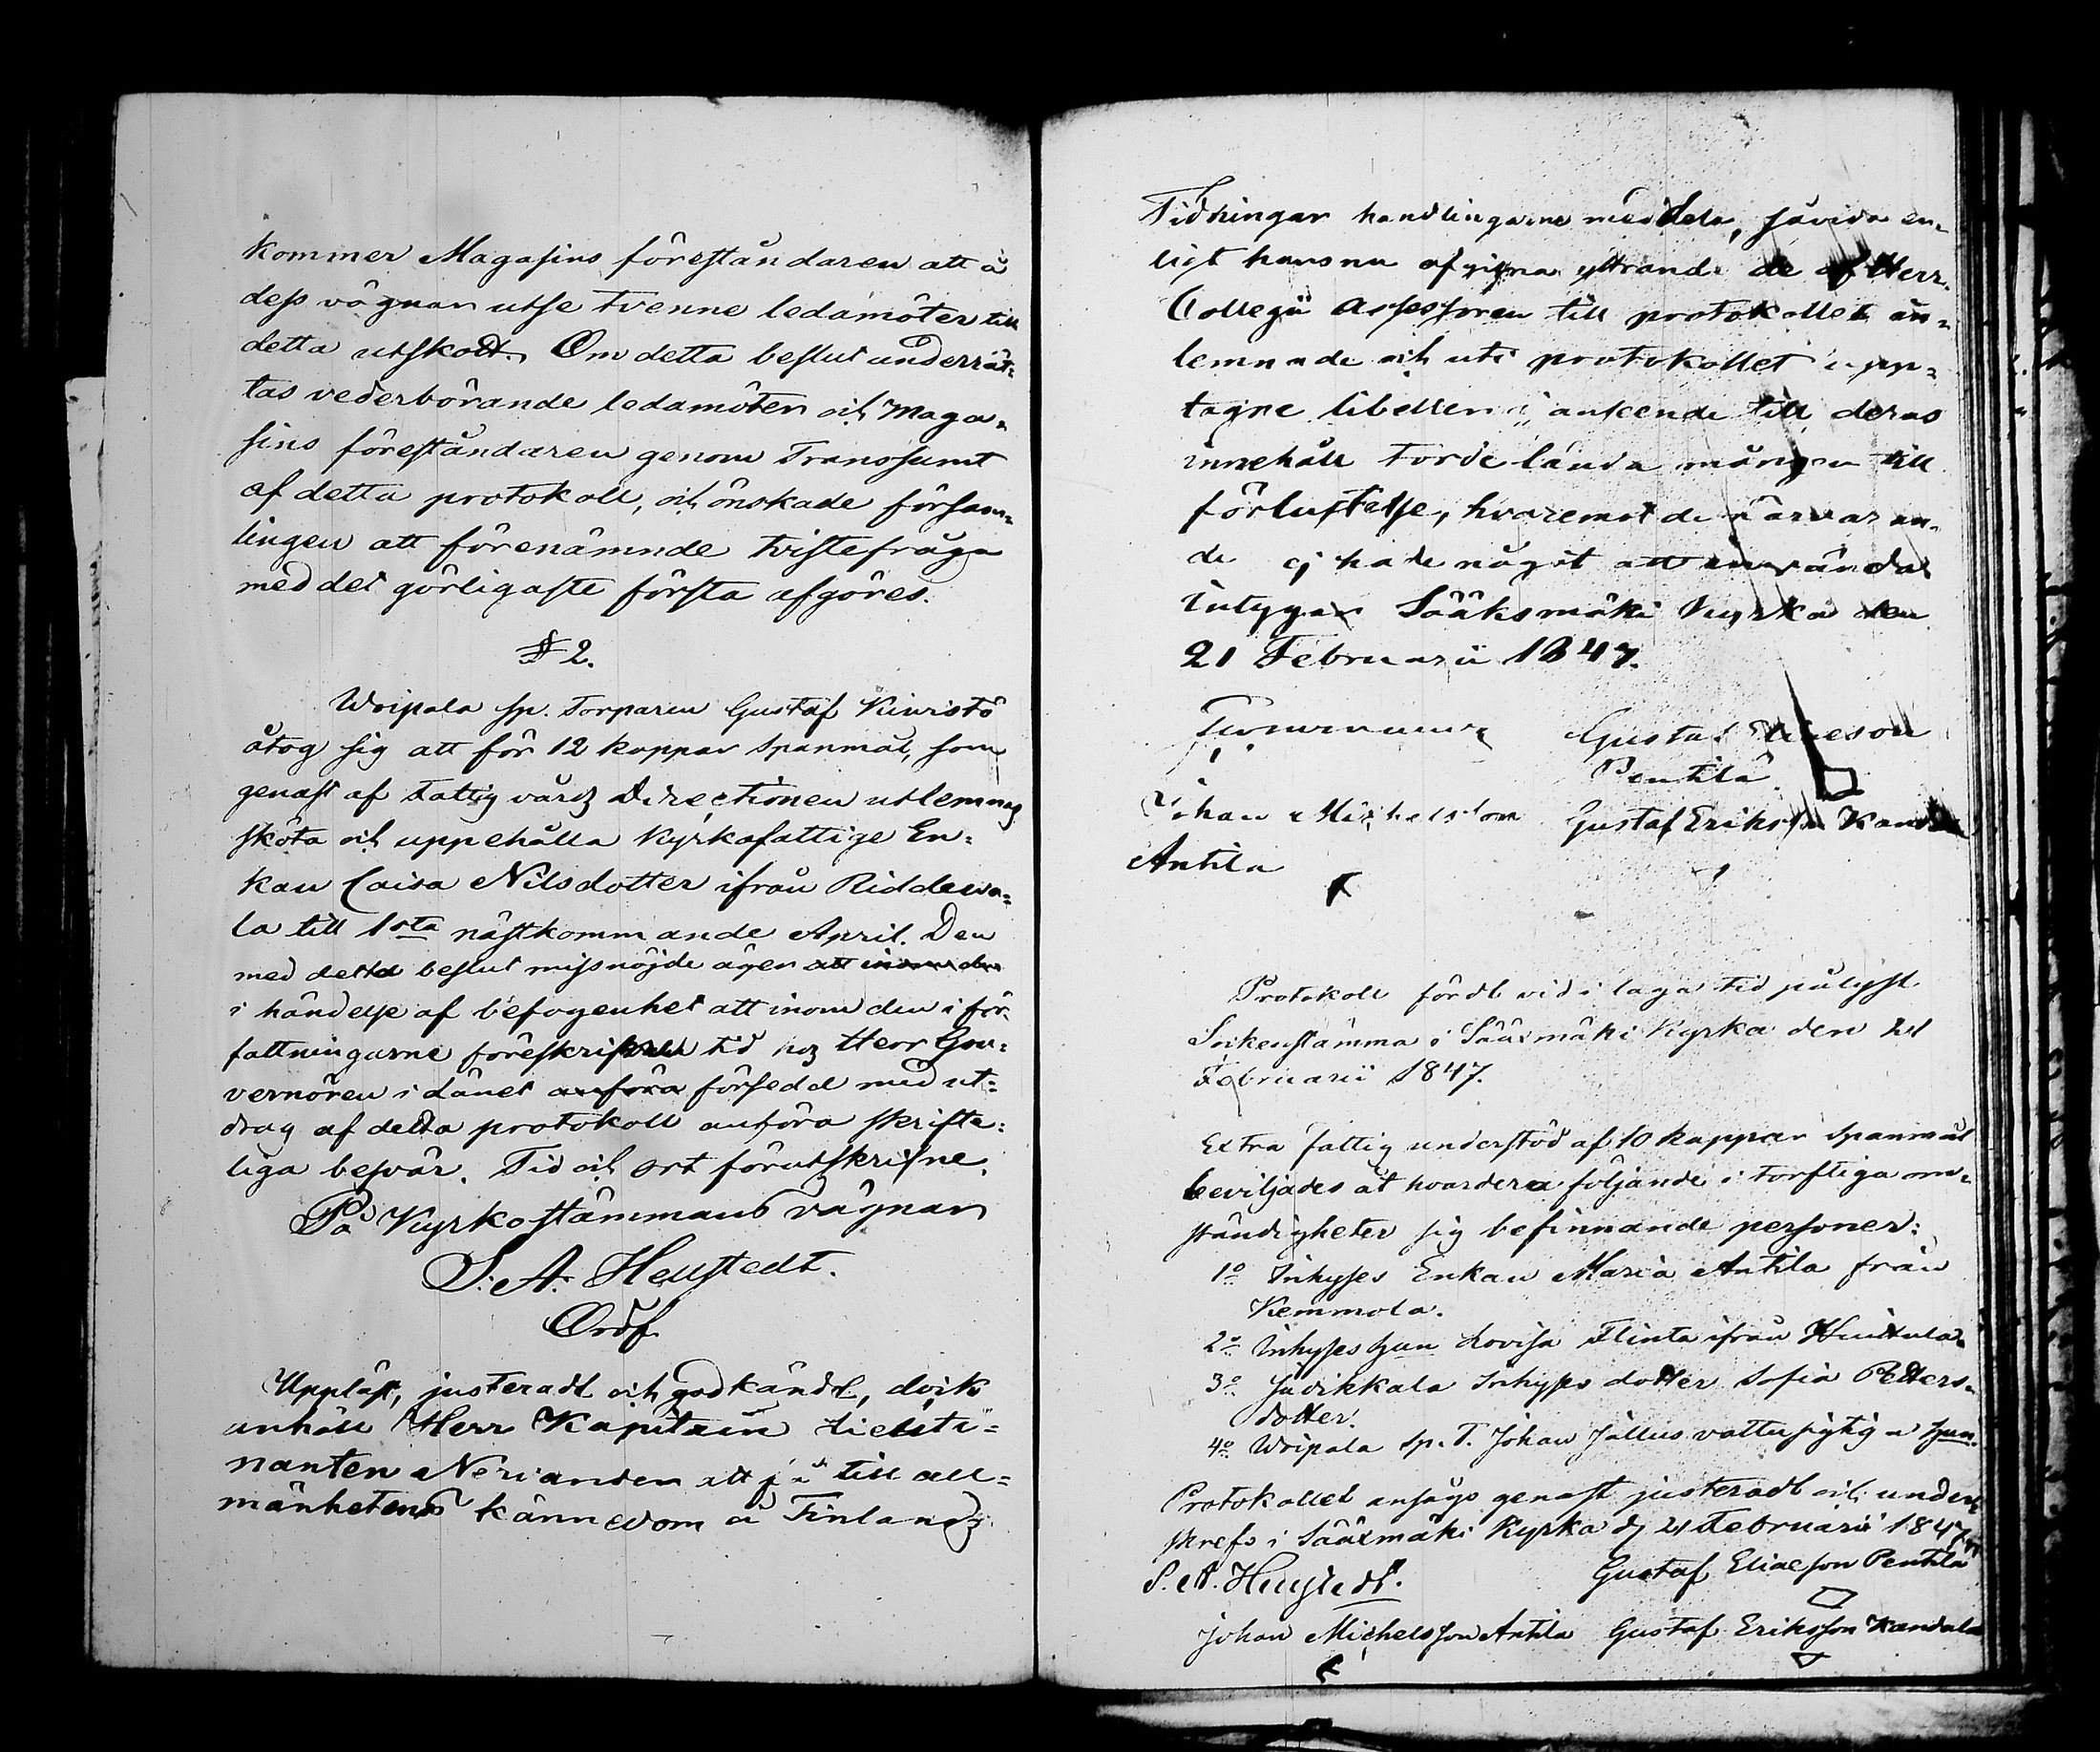 kommer Magasins föreståndaren att å
dess vägnar utse tvenne ledamöter till
detta utskott. Om detta beslut underrät=
tas vederbörande ledamöter och Maga=
sins föreståndaren genom Transsumt
af detta protokoll, och önskade försam=
lingen att förenämnde tvistefråga
med det görligaste första afgöres.
§ 2.
Woipala sp. Torparen Gustaf Kiwistö
åtog sig att för 12 kappar Spanmål, som
genast af Fattigvårds Directionen utlemnas
sköta och uppehålla Kyrkofattige En=
kan Caisa Nilsdotter ifrån Riddewa=
la till 1sta nästkommande April. Den
med detta beslut missnöjde äger att inom den
i händelse af befogenhet att inom den i för=
fattningarne föreskrifne tid hos Herr Gou=
vernören i Länet anföra försedd med ut=
drag af detta protokoll anföra skrifte=
liga besvär. Tid och ort förutskrifne.
På Kyrkostämmans vägnar
S. A. Heustedt.
Ordf.
Uppläst, justeradt och godkändt, dock
anhöll Herr Kapitain Lieute=
nanten Nerdander att få till all=
mänhetens kännedom å Finlands
Tidningar handlingarne meddela, såvida en=
ligt hans nu afgifna yttrande de af Herr
Collegii Assessoren till protokollet än=
lemnade och uti protokollet upp=
tagne libeller i anseende till deras
innehåll torde lända mången till
förlustelse, hvaremot de närvaran=
de ej hade något att invända
intygar Sääksmäki Kyrka den
21 Februarii 1847.
Gustaf Eliaeson
Pentilä
Johan Michelsson Gustaf Eriksson Kandala
Antila
Protokoll fördt vid i laga tid pålyst
Sockenstämma i Sääxmäki Kyrka den 21
Februarii 1847.
Extra fattig understöd af 10 kappar Spanmål
beviljades åt hvardera följande i torftiga om=
ständigheter sig befinnande personer:
1o Inhyses Enkan Maria Antila från
Kemmola.
2o Inhyses hjon Lovisa Flinta ifrån Huittula
3o Jutikkala Inhyses dotter Sofia Petters=
dotter.
4o Woipala Sp. T. Johan Jallus vattusigtiga hjon.
Protokollet ansågs genast justeradt och under=
skrefs i Sääxmäki Kyrka d. 21 Februarii 1847.
S. A. Heustedt. Gustaf Eliaeson Pentilä
Johan Michelsson Antila Gustaf Eriksson Kandala